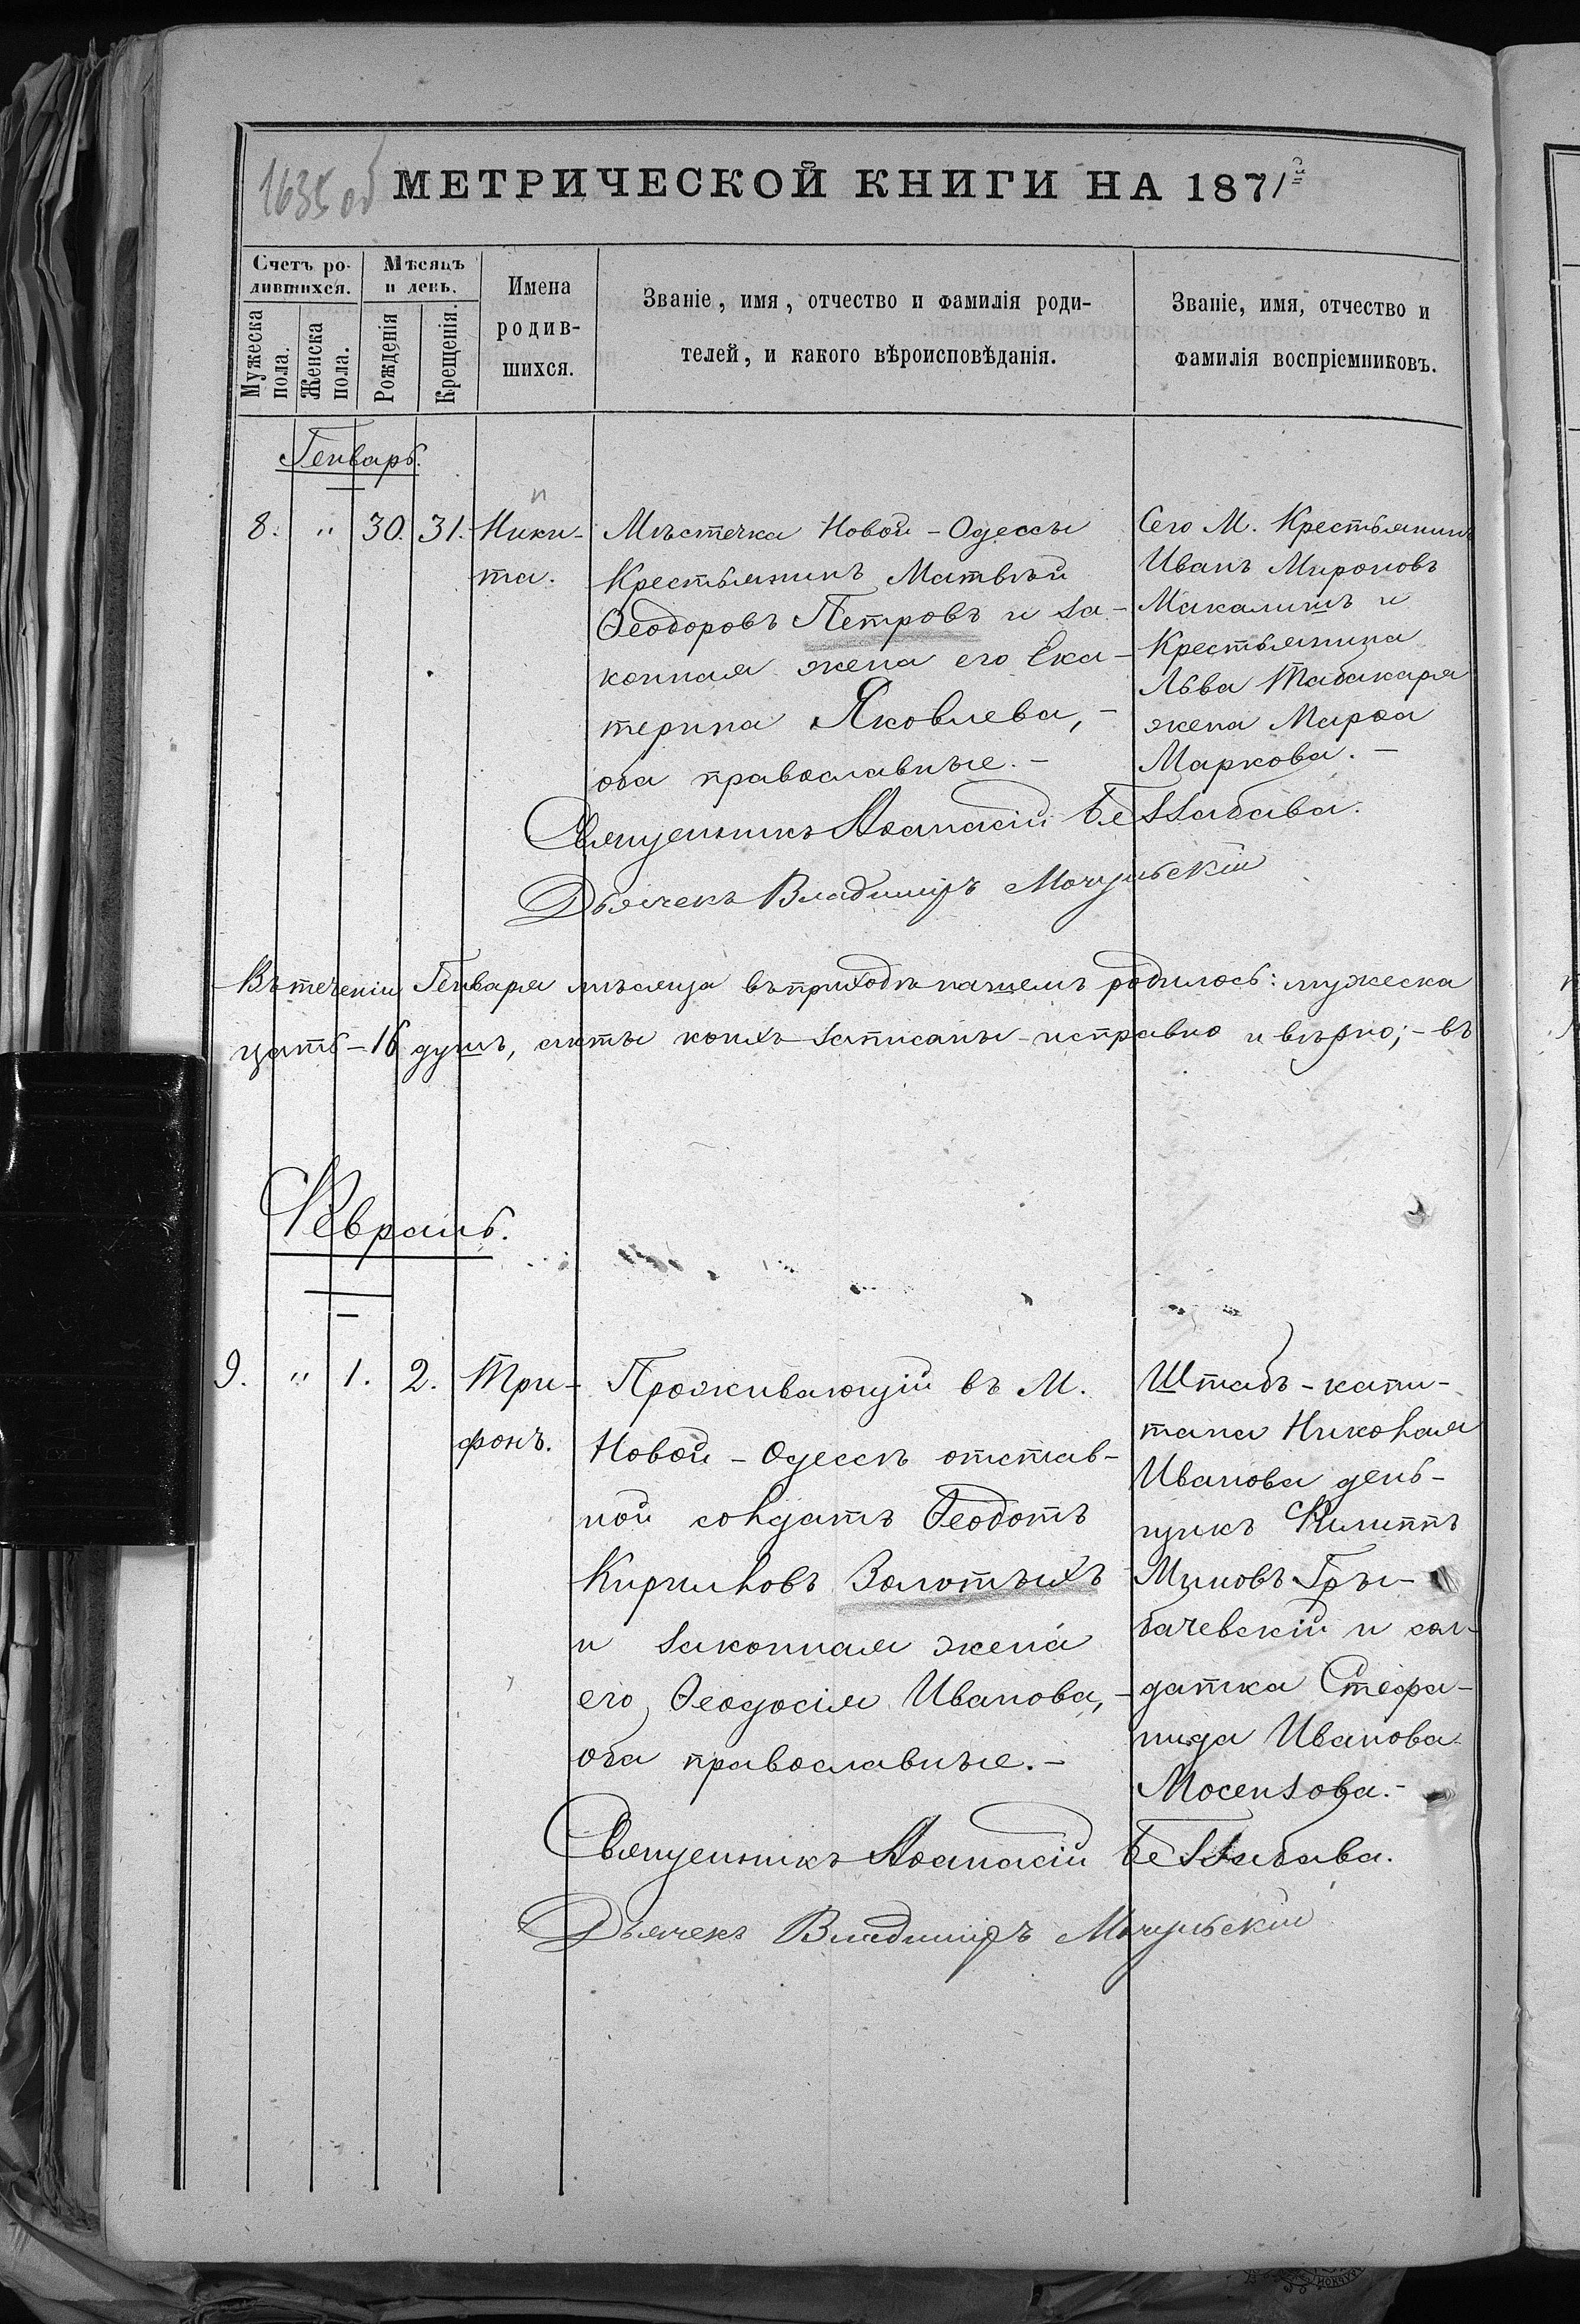 1635 об МЕТРИЧЕСКОЙ КНИГИ НА 1871й
Счетъ ро-
дившихся.
Мѣсяцъ
и день.
Мужеска
пола.
Женска
пола.
Рожденія
Крещенія.
Имена
родив-
шихся.
Званіе, имя, отчество и фамилія роди-
телей, и какого вѣроисповѣданія.
Званіе, имя, отчество и
фамилія воспріемниковъ.
Генварь.
8. " 30. 31. Ники-
та.
Мѣстечка Новой-Одессы
Крестьянинъ Матвѣй
Ѳеодоровъ Петровъ и за-
конная жена его Ека-
терина Яковлева, -
оба православные. -
Сего М. Крестьянинъ
Иванъ Мироновъ
и
Крестьянина
Льва Табакаря
жена Марѳа
Маркова. -
Священникъ Аѳанасій Беззабава.
Дьячекъ Владиміръ Мочульскій
Въ теченіи Генваря мѣсяца въ приходѣ нашемъ родилось: мужеска
цать - 16 душъ, акты коихъ записаны исправно и вѣрно; - въ
Февраль.
9. " 1. 2. Три-
фонъ.
Проживающій въ М.
Новой-Одессѣ отстав-
ной солдатъ Ѳеодотъ
Кириловъ Золотыхъ
и законная жена
его Ѳеодосія Иванова, -
оба православные. -
Штабъ-капи-
тана Николая
Иванова день-
щикъ Филиппъ
Гры-
бачевскій и сол-
датка Стефа-
нида Иванова
Мосензова. -
Священникъ Аѳанасій Беззабава.
Дьячекъ Владиміръ Мочульскій